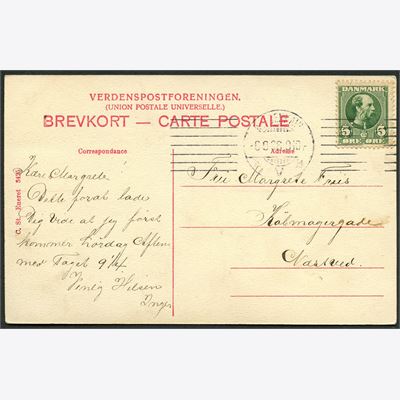 VERDENSPOSTFORENINGEN.
(UNION POSTALE UNIVERSELLE.)
BREVKORT — CARTE POSTALE
Correspondance
Adresse
DANMARK
5 5
ØRE ØRE
C. St. Eneret
Kære Margrete
Dette for at lade
Dig vide at jeg først
kommer Lørdag Aften
med Toget 9
Venlig Hilsen
Inger
Margrete Friis
Købmagergade
Næstved.